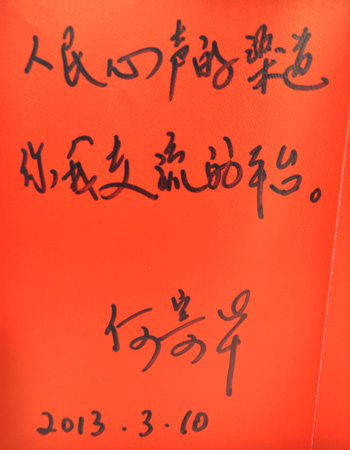 人民心声的渠道
你我交流的平台。
何
2013.3.10